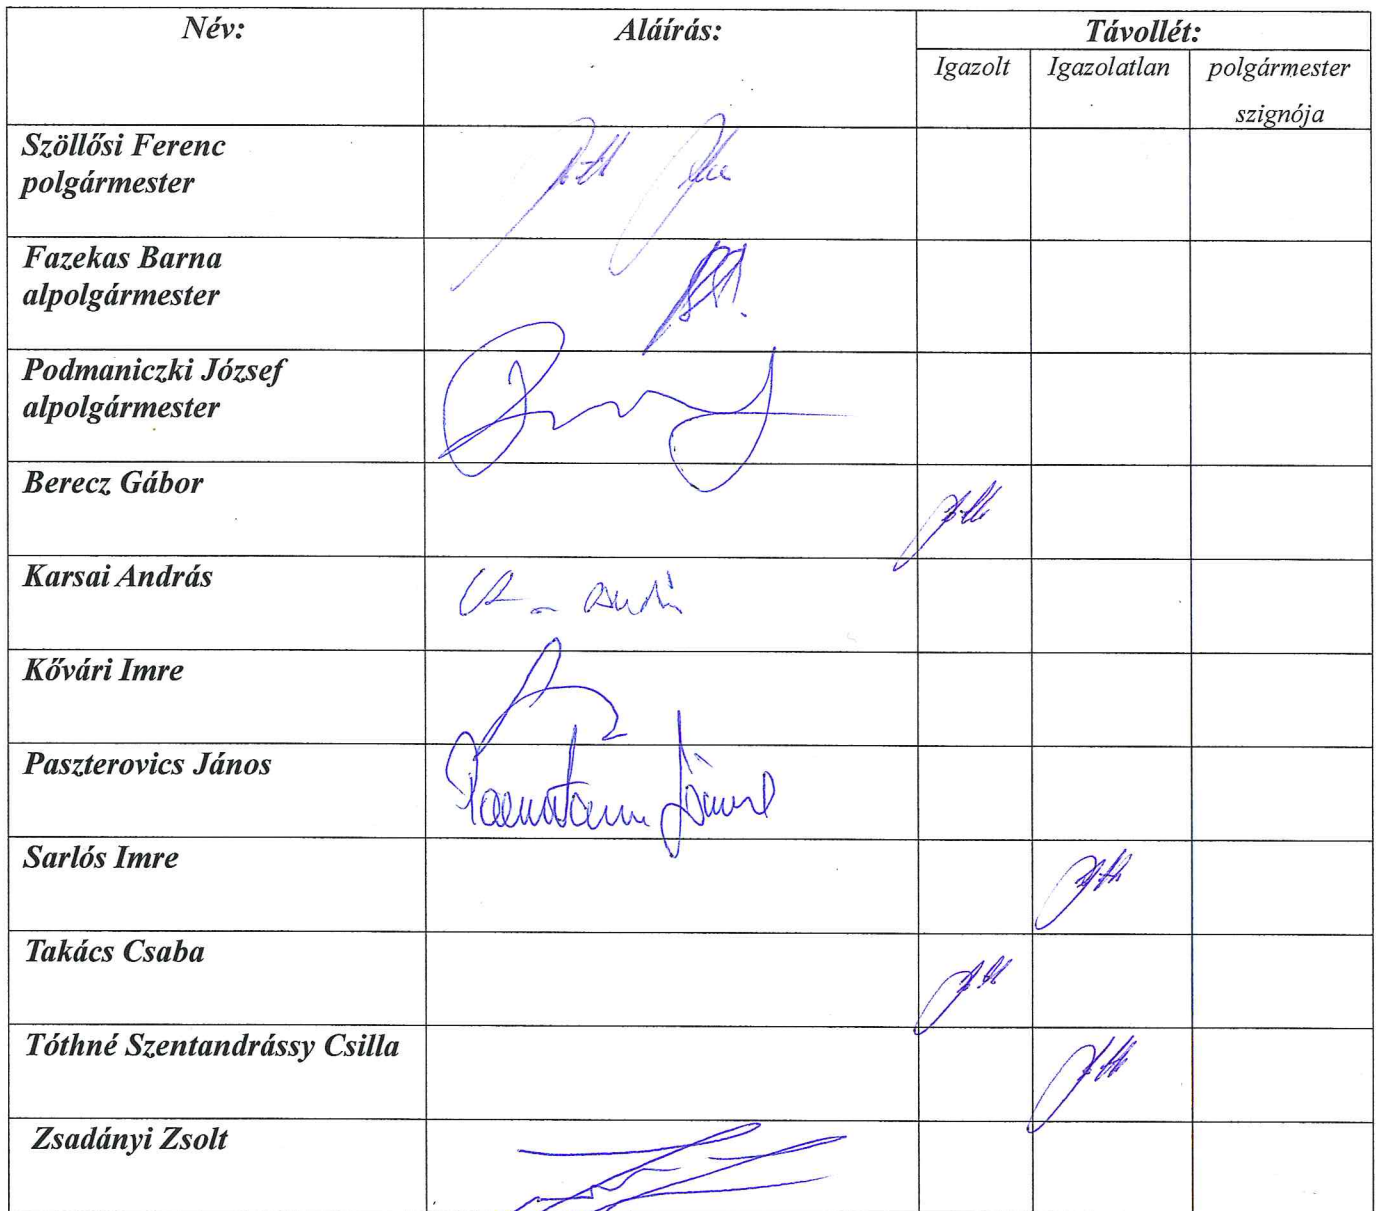 Név:
Aláírás:
Távollét:
Igazolt
Igazolatlan
polgármester
szignója
Szöllősi Ferenc
polgármester
Fazekas Barna
alpolgármester
Podmaniczki József
alpolgármester
Berecz Gábor
Karsai András
Kővári Imre
Paszterovics János
Sarlós Imre
Takács Csaba
Tóthné Szentandrássy Csilla
Zsadányi Zsolt